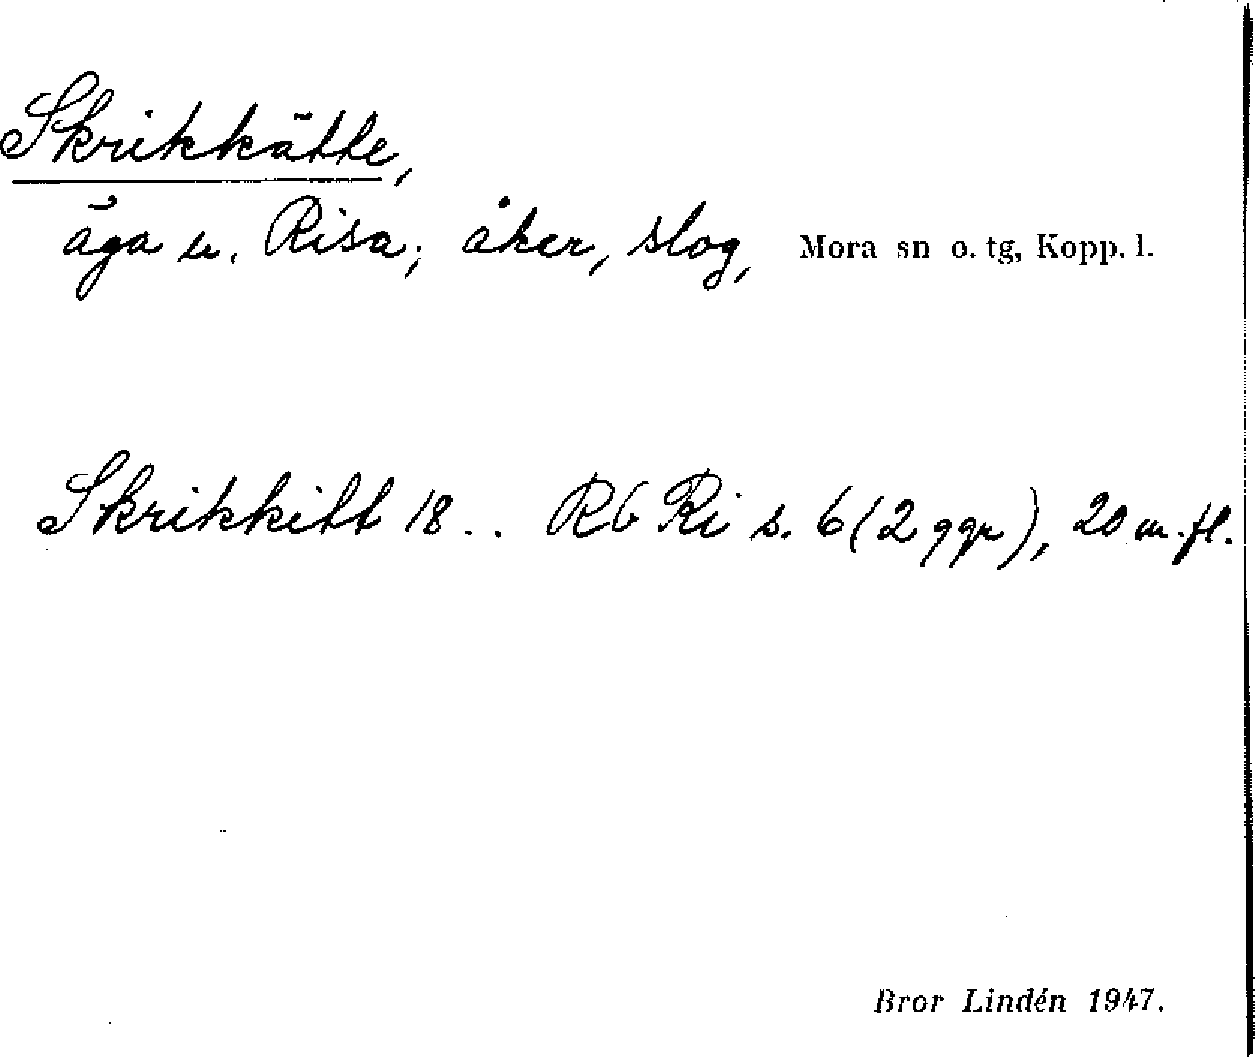 Skrikkätte,
äga u. Risa; åker, slog, Mora sn o. tg, Kopp. l.
Skrikkitt 18.. RG Ri s. 6 (2 ggr), 20 m. fl.
Bror Lindén 1947.